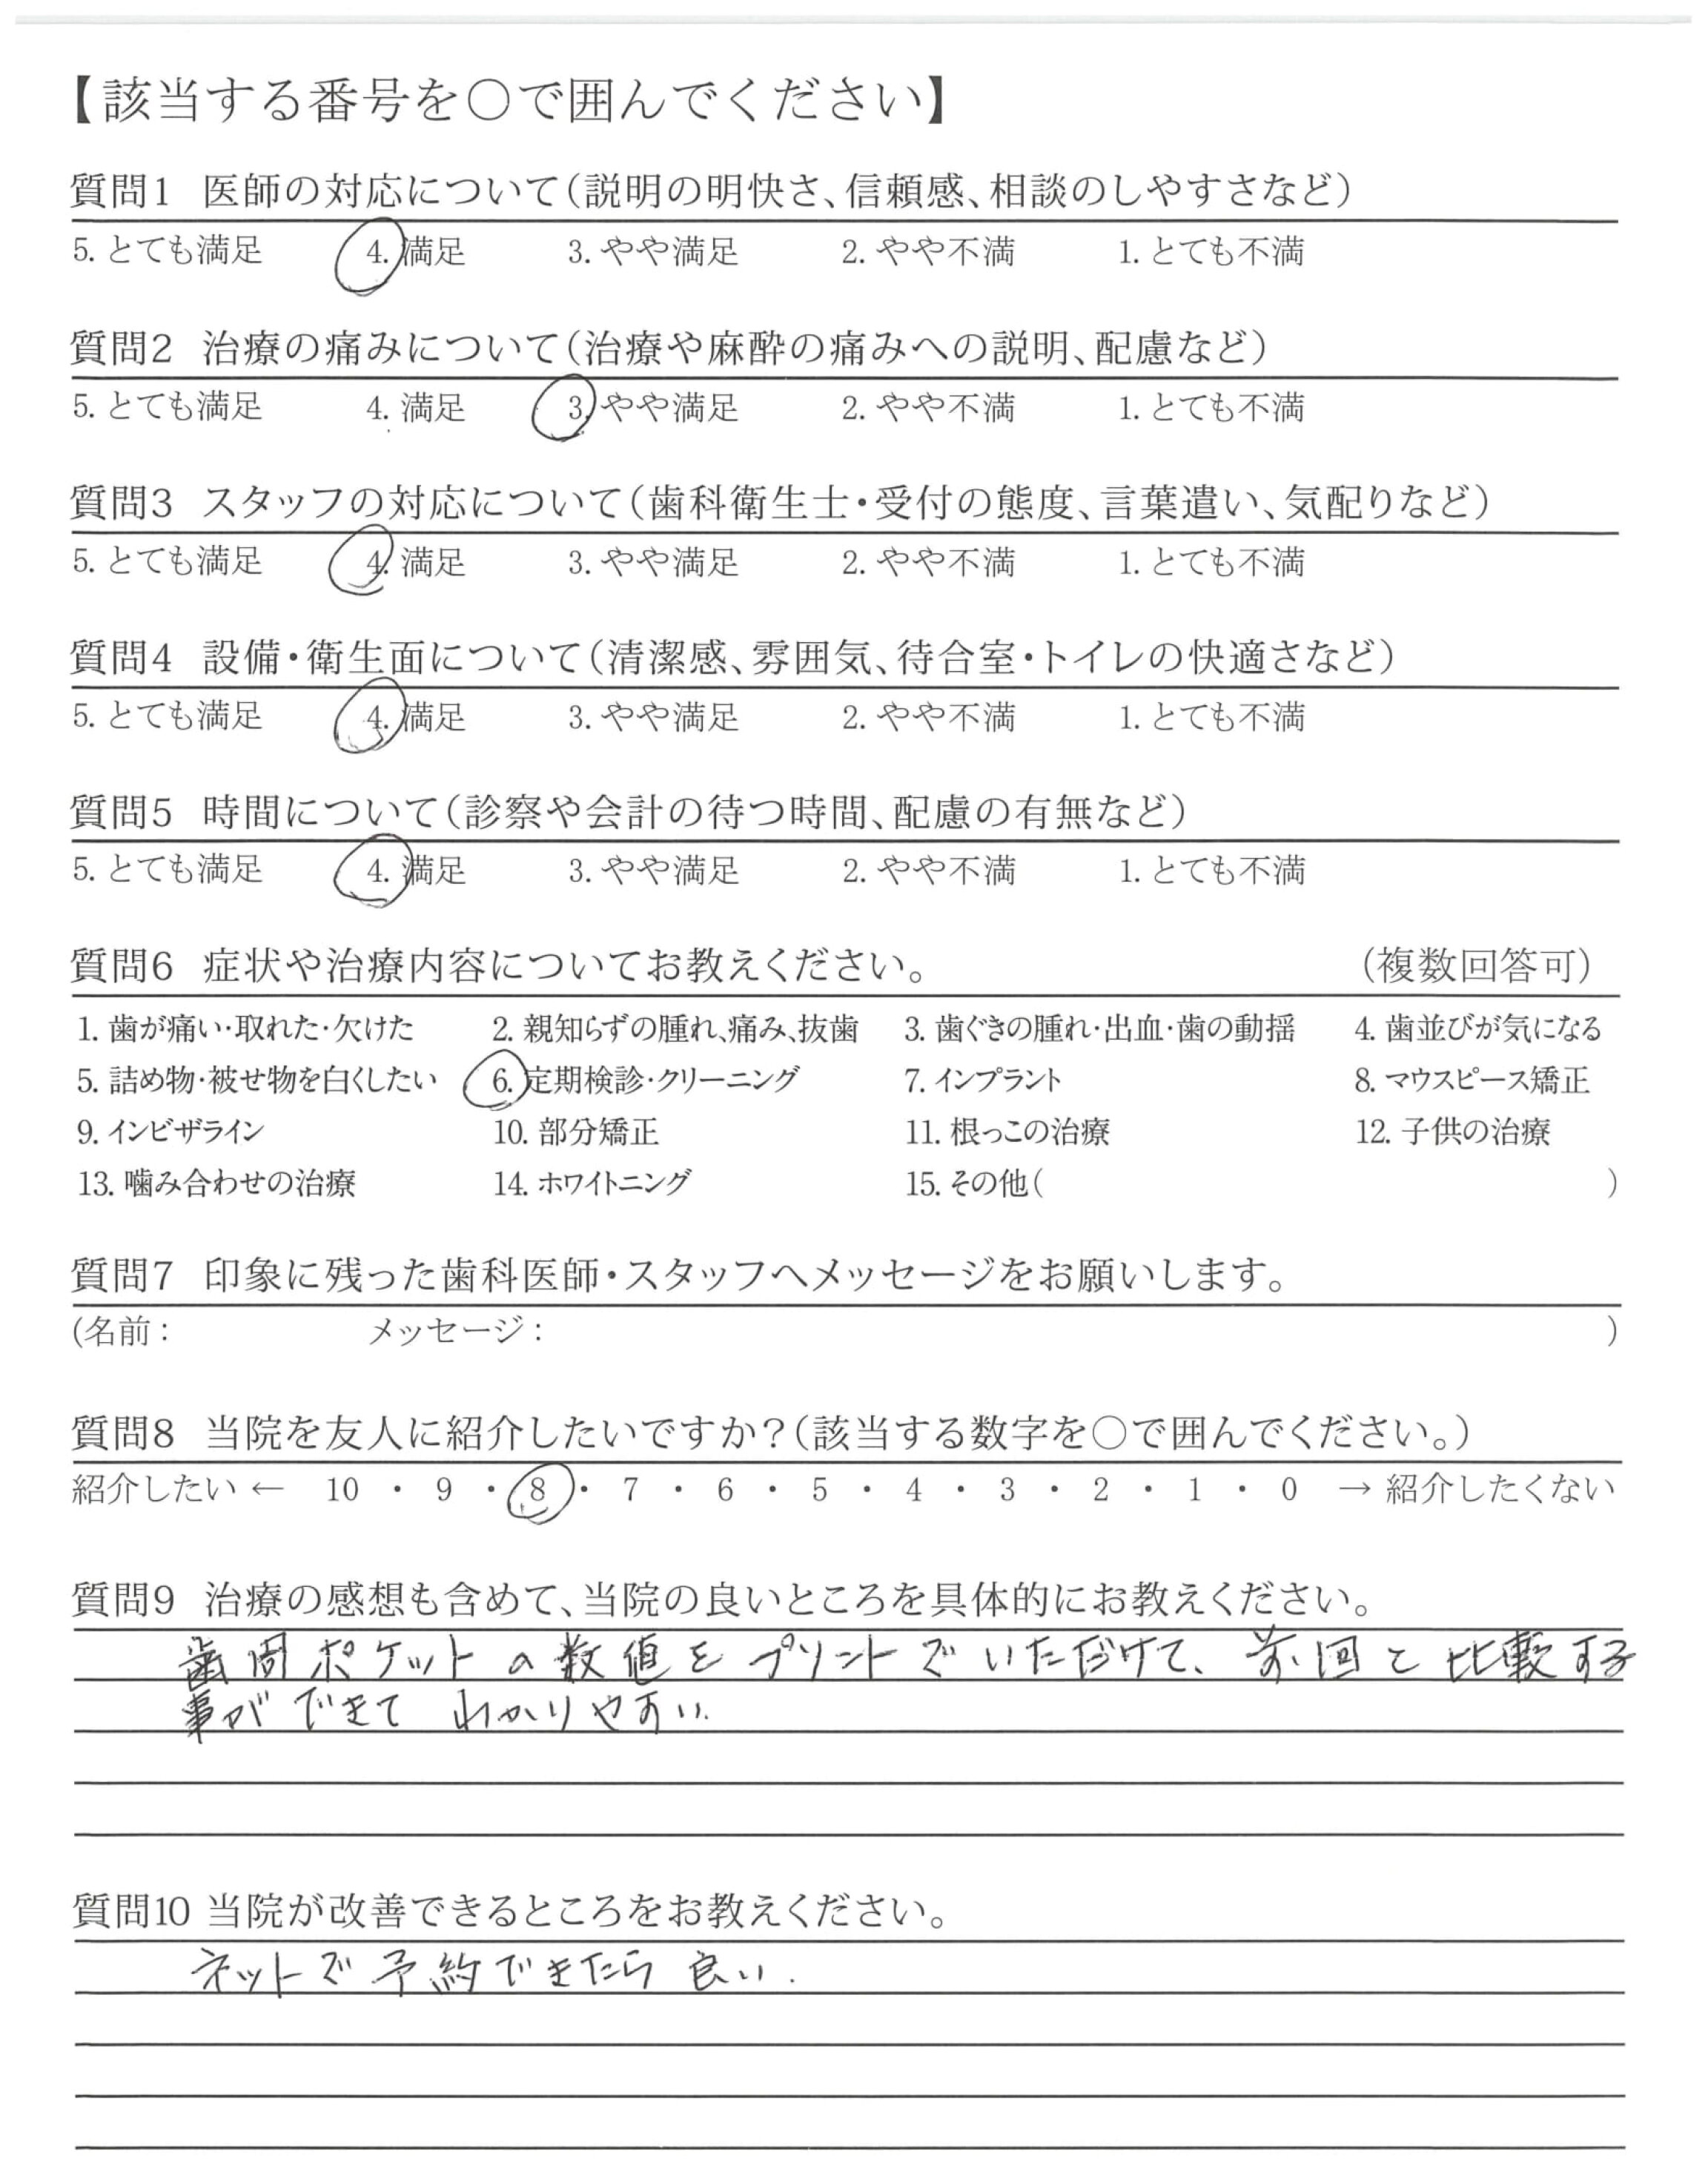 【該当する番号を○で囲んでください】
質問1 医師の対応について(説明の明快さ、信頼感、相談のしやすさなど)
5. とても満足 4. 満足 3. やや満足 2. やや不満 1. とても不満
質問2 治療の痛みについて(治療や麻酔の痛みへの説明、配慮など)
5. とても満足 4. 満足 3. やや満足 2. やや不満 1. とても不満
質問3 スタッフの対応について(歯科衛生士・受付の態度、言葉遣い、気配りなど)
5. とても満足 4. 満足 3. やや満足 2. やや不満 1. とても不満
質問4 設備・衛生面について(清潔感、雰囲気、待合室・トイレの快適さなど)
5. とても満足 4. 満足 3. やや満足 2. やや不満 1. とても不満
質問5 時間について(診察や会計の待つ時間、配慮の有無など)
5. とても満足 4. 満足 3. やや満足 2. やや不満 1. とても不満
質問6 症状や治療内容についてお教えください。 (複数回答可)
1. 歯が痛い・取れた・欠けた 2. 親知らずの腫れ、痛み、抜歯 3. 歯ぐきの腫れ・出血・歯の動揺 4. 歯並びが気になる
5. 詰め物・被せ物を白くしたい 6. 定期検診・クリーニング 7. インプラント 8. マウスピース矯正
9. インビザライン 10. 部分矯正 11. 根っこの治療 12. 子供の治療
13. 噛み合わせの治療 14. ホワイトニング 15. その他( )
質問7 印象に残った歯科医師・スタッフへメッセージをお願いします。
(名前: メッセージ: )
質問8 当院を友人に紹介したいですか?(該当する数字を○で囲んでください。)
紹介したい ← 10 ・ 9 ・ 8 ・ 7 ・ 6 ・ 5 ・ 4 ・ 3 ・ 2 ・ 1 ・ 0 → 紹介したくない
質問9 治療の感想も含めて、当院の良いところを具体的にお教えください。
歯周ポケットの数値をプリントでいただけて、前回と比較する
事ができて わかりやすい.
質問10 当院が改善できるところをお教えください。
ネットで予約できたら良い.